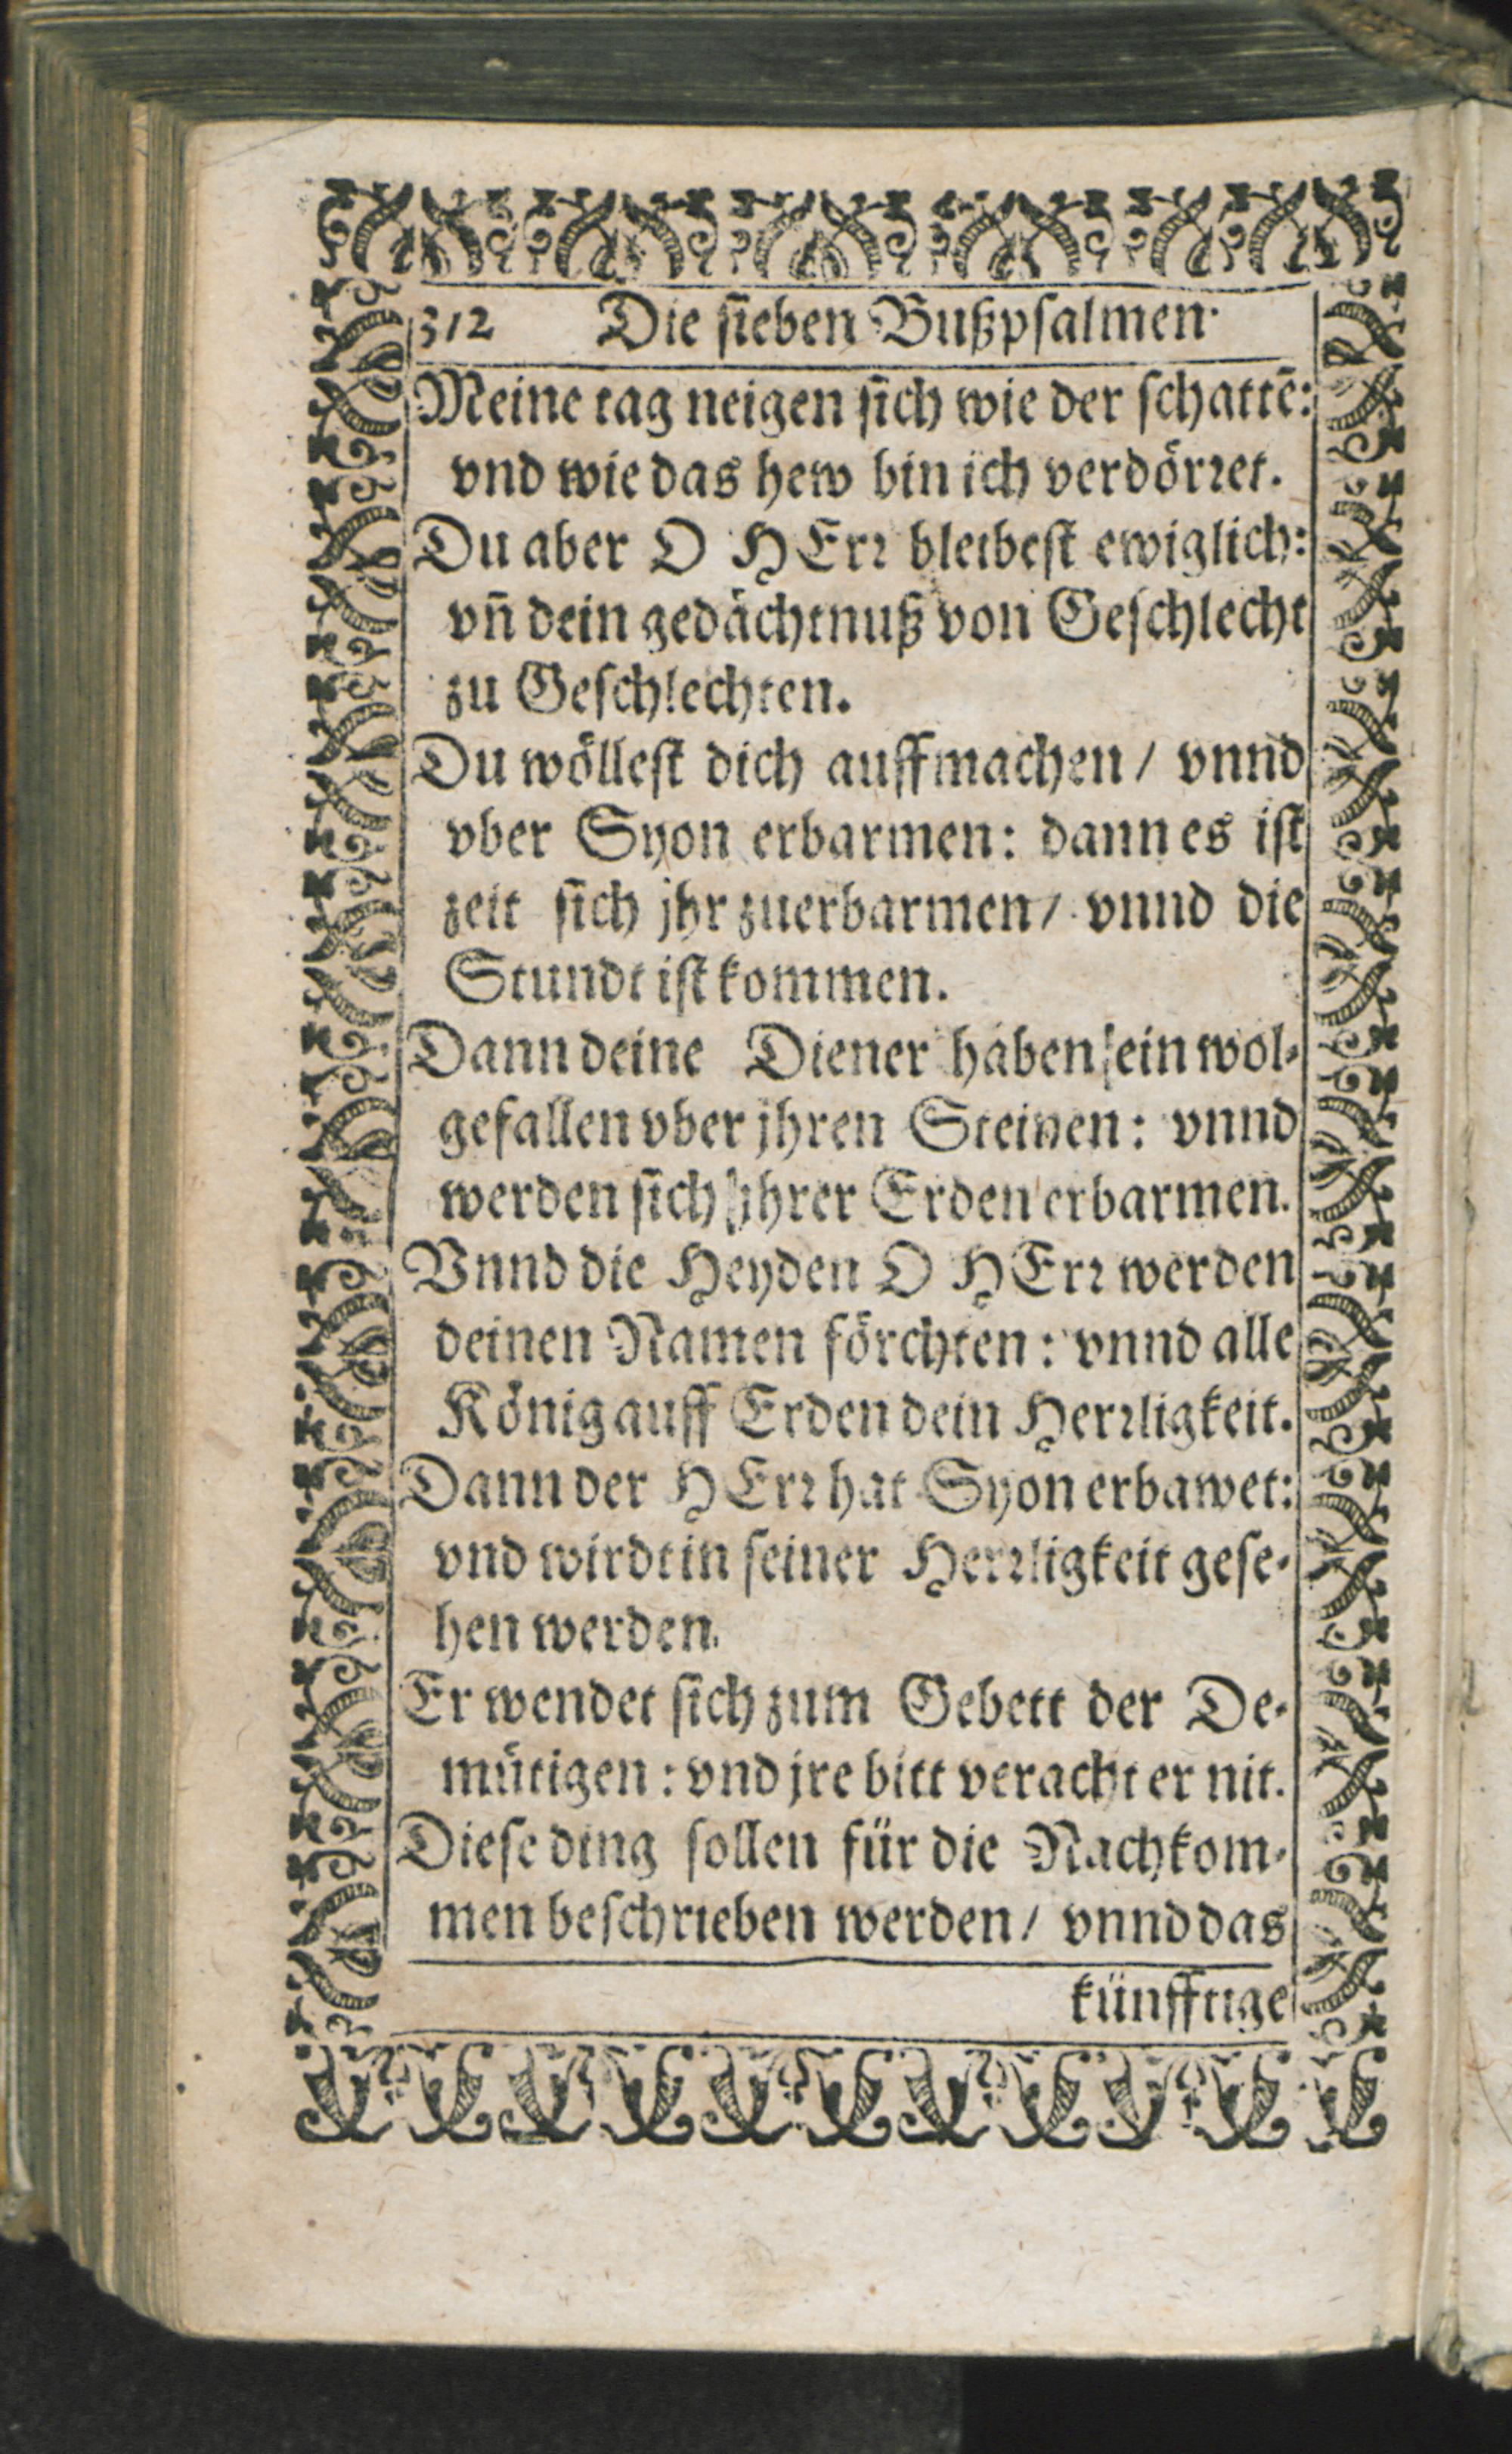 312 Die sieben Bußpsalmen.
Meine tag neigen sich wie der schattē:
vnd wie das hew bin ich verdörret.
Du aber O HErr bleibest ewiglich:
vn̄ dein gedächtnuß von Geschlecht
zu Geschlechten.
Du wöllest dich auffmachen / vnnd
vber Syon erbarmen: dann es ist
zeit sich jhr zuerbarmen / vnnd die
Stundt ist kommen.
Dann deine Diener haben sein wol-
gefallen vber jhren Steinen: vnnd
werden sich jhrer Erden erbarmen.
Vnnd die Heyden O HErr werden
deinen Namen förchten: vnnd alle
König auff Erden dein Herrligkeit.
Dann der HErr hat Syon erbawet:
vnd wirdt in seiner Herrligkeit gese-
hen werden.
Er wendet sich zum Gebett der De-
mütigen: vnd jre bitt veracht er nit.
Diese ding sollen für die Nachkom-
men beschrieben werden / vnnd das
künfftige